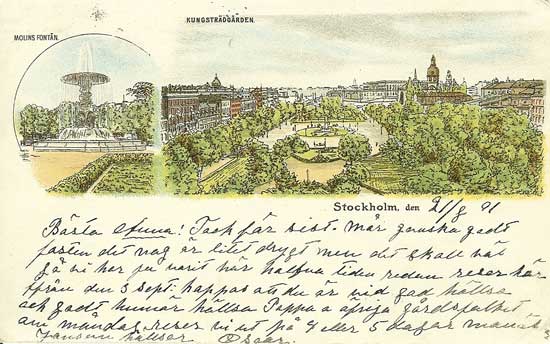 KUNGSTRÄDGÅRDEN.
MOLINS FONTÄN.
Stockholm, den 21/8 91
Bästa Anna! Tack för sist. Mår ganska godt
fasten det nog är litet drygt men det skall väl
gå vi har ju varit här halfva tiden redan reser här
ifrån den 3 sept. hoppas att du är vid god hällsa
och godt humör hällsa Pappa o öfriga gårdsfolket
om måndag reser vi ut på 4 eller 5 dagar
hällsar Oscar.